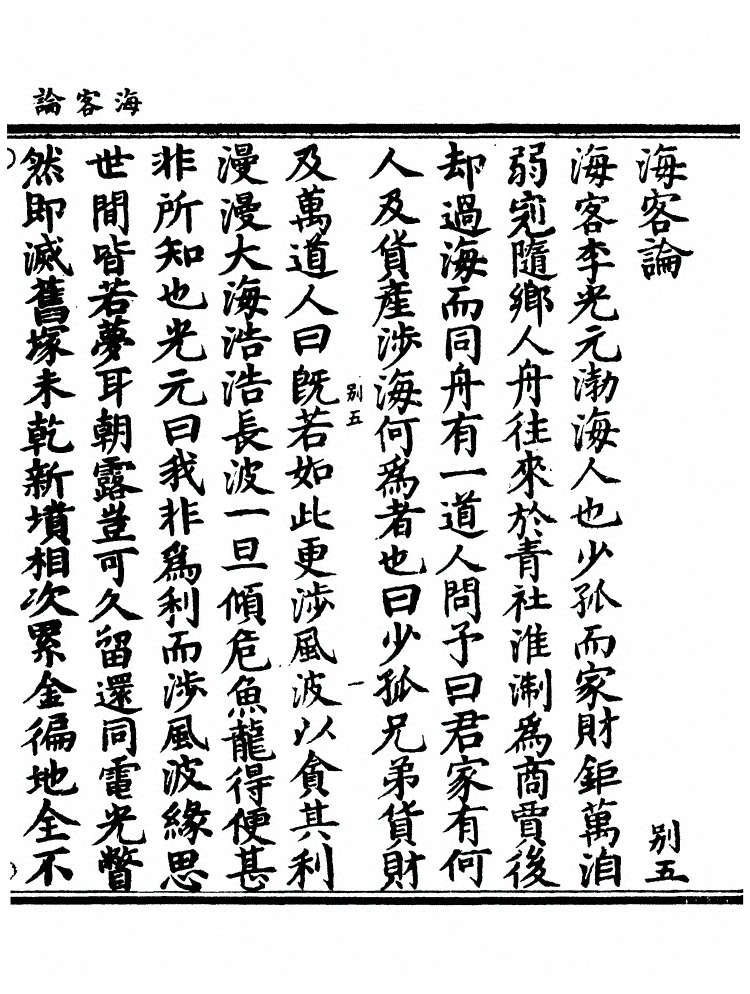 海客論
海客論 别五
海客李光元渤海人也少孤而家財鉅萬洎
弱𡨚隨鄉人舟往來於青社淮淛爲商賈後
却過海而同舟有一道人問予曰君家有何
人及貨産涉海何爲者也曰少孤兄弟貨財
别五 一
及萬道人曰既若如此更涉風波以貪其利
漫漫大海浩浩長波一旦傾危魚龍得便甚
非所知也光元曰我非爲利而涉風波緣思
世間皆若夢耳朝露豈可久留還同電光瞥
然即滅舊塚未乾新墳相次累金徧地全不